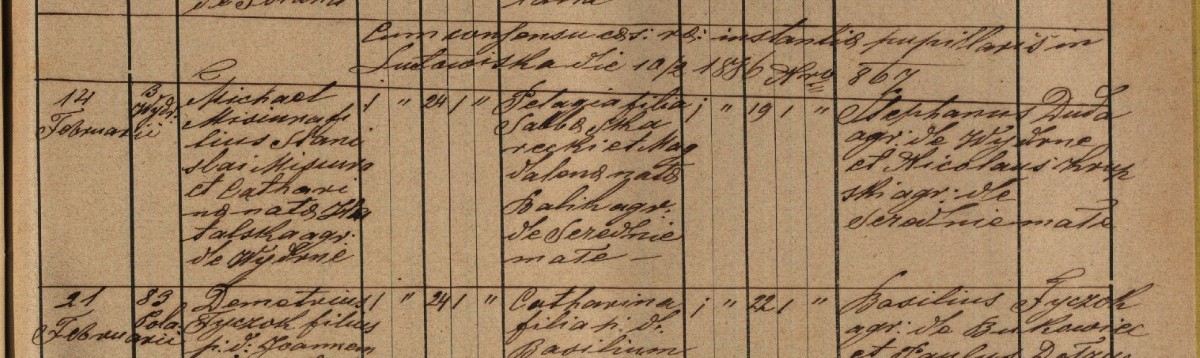 Cum consensu c: r: instantiæ pupillaris in
Lutowiska die 10/2 1886 Nro 867
14
Februarii
3
Wydr:
Michael
Misiura fi
lius Stani
slai Misiura
et Cathari
na nata
talska agr:
de Wydrne
1 " 24 1 "
Pelagia filia
Sabbæ Ska
recki et Mag
dalena nata
Balik agr:
de Serednie
małe —
1 " 19 1 "
Stephanus Duda
agr: de Wydrne
et Nicolaus Krup
ski agr: de
Serednie małe
21
Februarii
83
Pola
Demetrius
Fyczok filius
p: d: Joannem
1 " 24 1 "
Catharina
filia p: d:
Basilium
1 " 22 1 "
Basilius Fyczok
agr: de Bukowiec
et Paulus